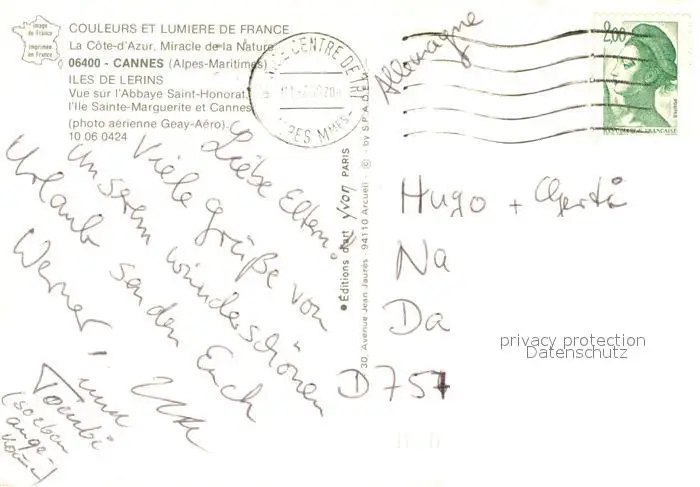 Image
de France
Imprimée
en France
COULEURS ET LUMIERE DE FRANCE
La Côte-d'Azur, Miracle de la Nature
06400 - CANNES (Alpes-Maritimes)
ILES DE LERINS
Vue sur l'Abbaye Saint-Honorat,
l'Ile Sainte-Marguerite et Cannes
(photo aérienne Geay-Aéro)
10 06 0424
CENTRE DE TRI
PES MMES
Allemagne
2,00
Liebe Eltern!
Viele Grüße von
unserem wunderschönen
Urlaub senden Euch
Werner, und
(soeben
ange-
● Éditions d'art yvon PARIS
30, Avenue Jean Jaurès - 94110 Arcueil - © - by S.P.A.D.E.M.
Hugo + Gerti
Na
Da
D 751
privacy protection
Datenschutz